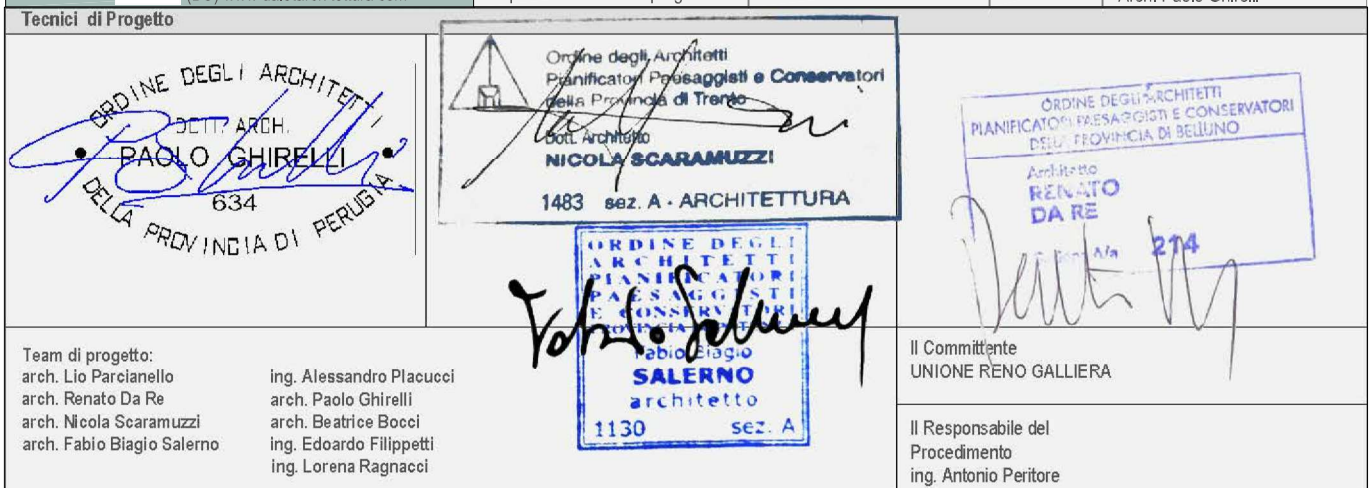 Tecnici di Progetto
ORDINE DEGLI ARCHITETTI
DOTT. ARCH.
PAOLO GHIRELLI
634
DELLA PROVINCIA DI PERUGIA
Ordine degli Architetti
Pianificatori Paesaggisti e Conservatori
della Provincia di Trento
Dott. Architetto
NICOLA SCARAMUZZI
1483 sez. A - ARCHITETTURA
ORDINE DEGLI
ARCHITETTI
PIANIFICATORI
PAESAGGISTI
E CONSERVATORI
PROVINCIA
Fabio Biagio
SALERNO
architetto
1130 sez. A
ORDINE DEGLI ARCHITETTI
PIANIFICATORI PAESAGGISTI E CONSERVATORI
DELLA PROVINCIA DI BELLUNO
Architetto
RENATO
DA RE
214
Team di progetto:
arch. Lio Parcianello
arch. Renato Da Re
arch. Nicola Scaramuzzi
arch. Fabio Biagio Salerno
ing. Alessandro Placucci
arch. Paolo Ghirelli
arch. Beatrice Bocci
ing. Edoardo Filippetti
ing. Lorena Ragnacci
Il Committente
UNIONE RENO GALLIERA
Il Responsabile del
Procedimento
ing. Antonio Peritore